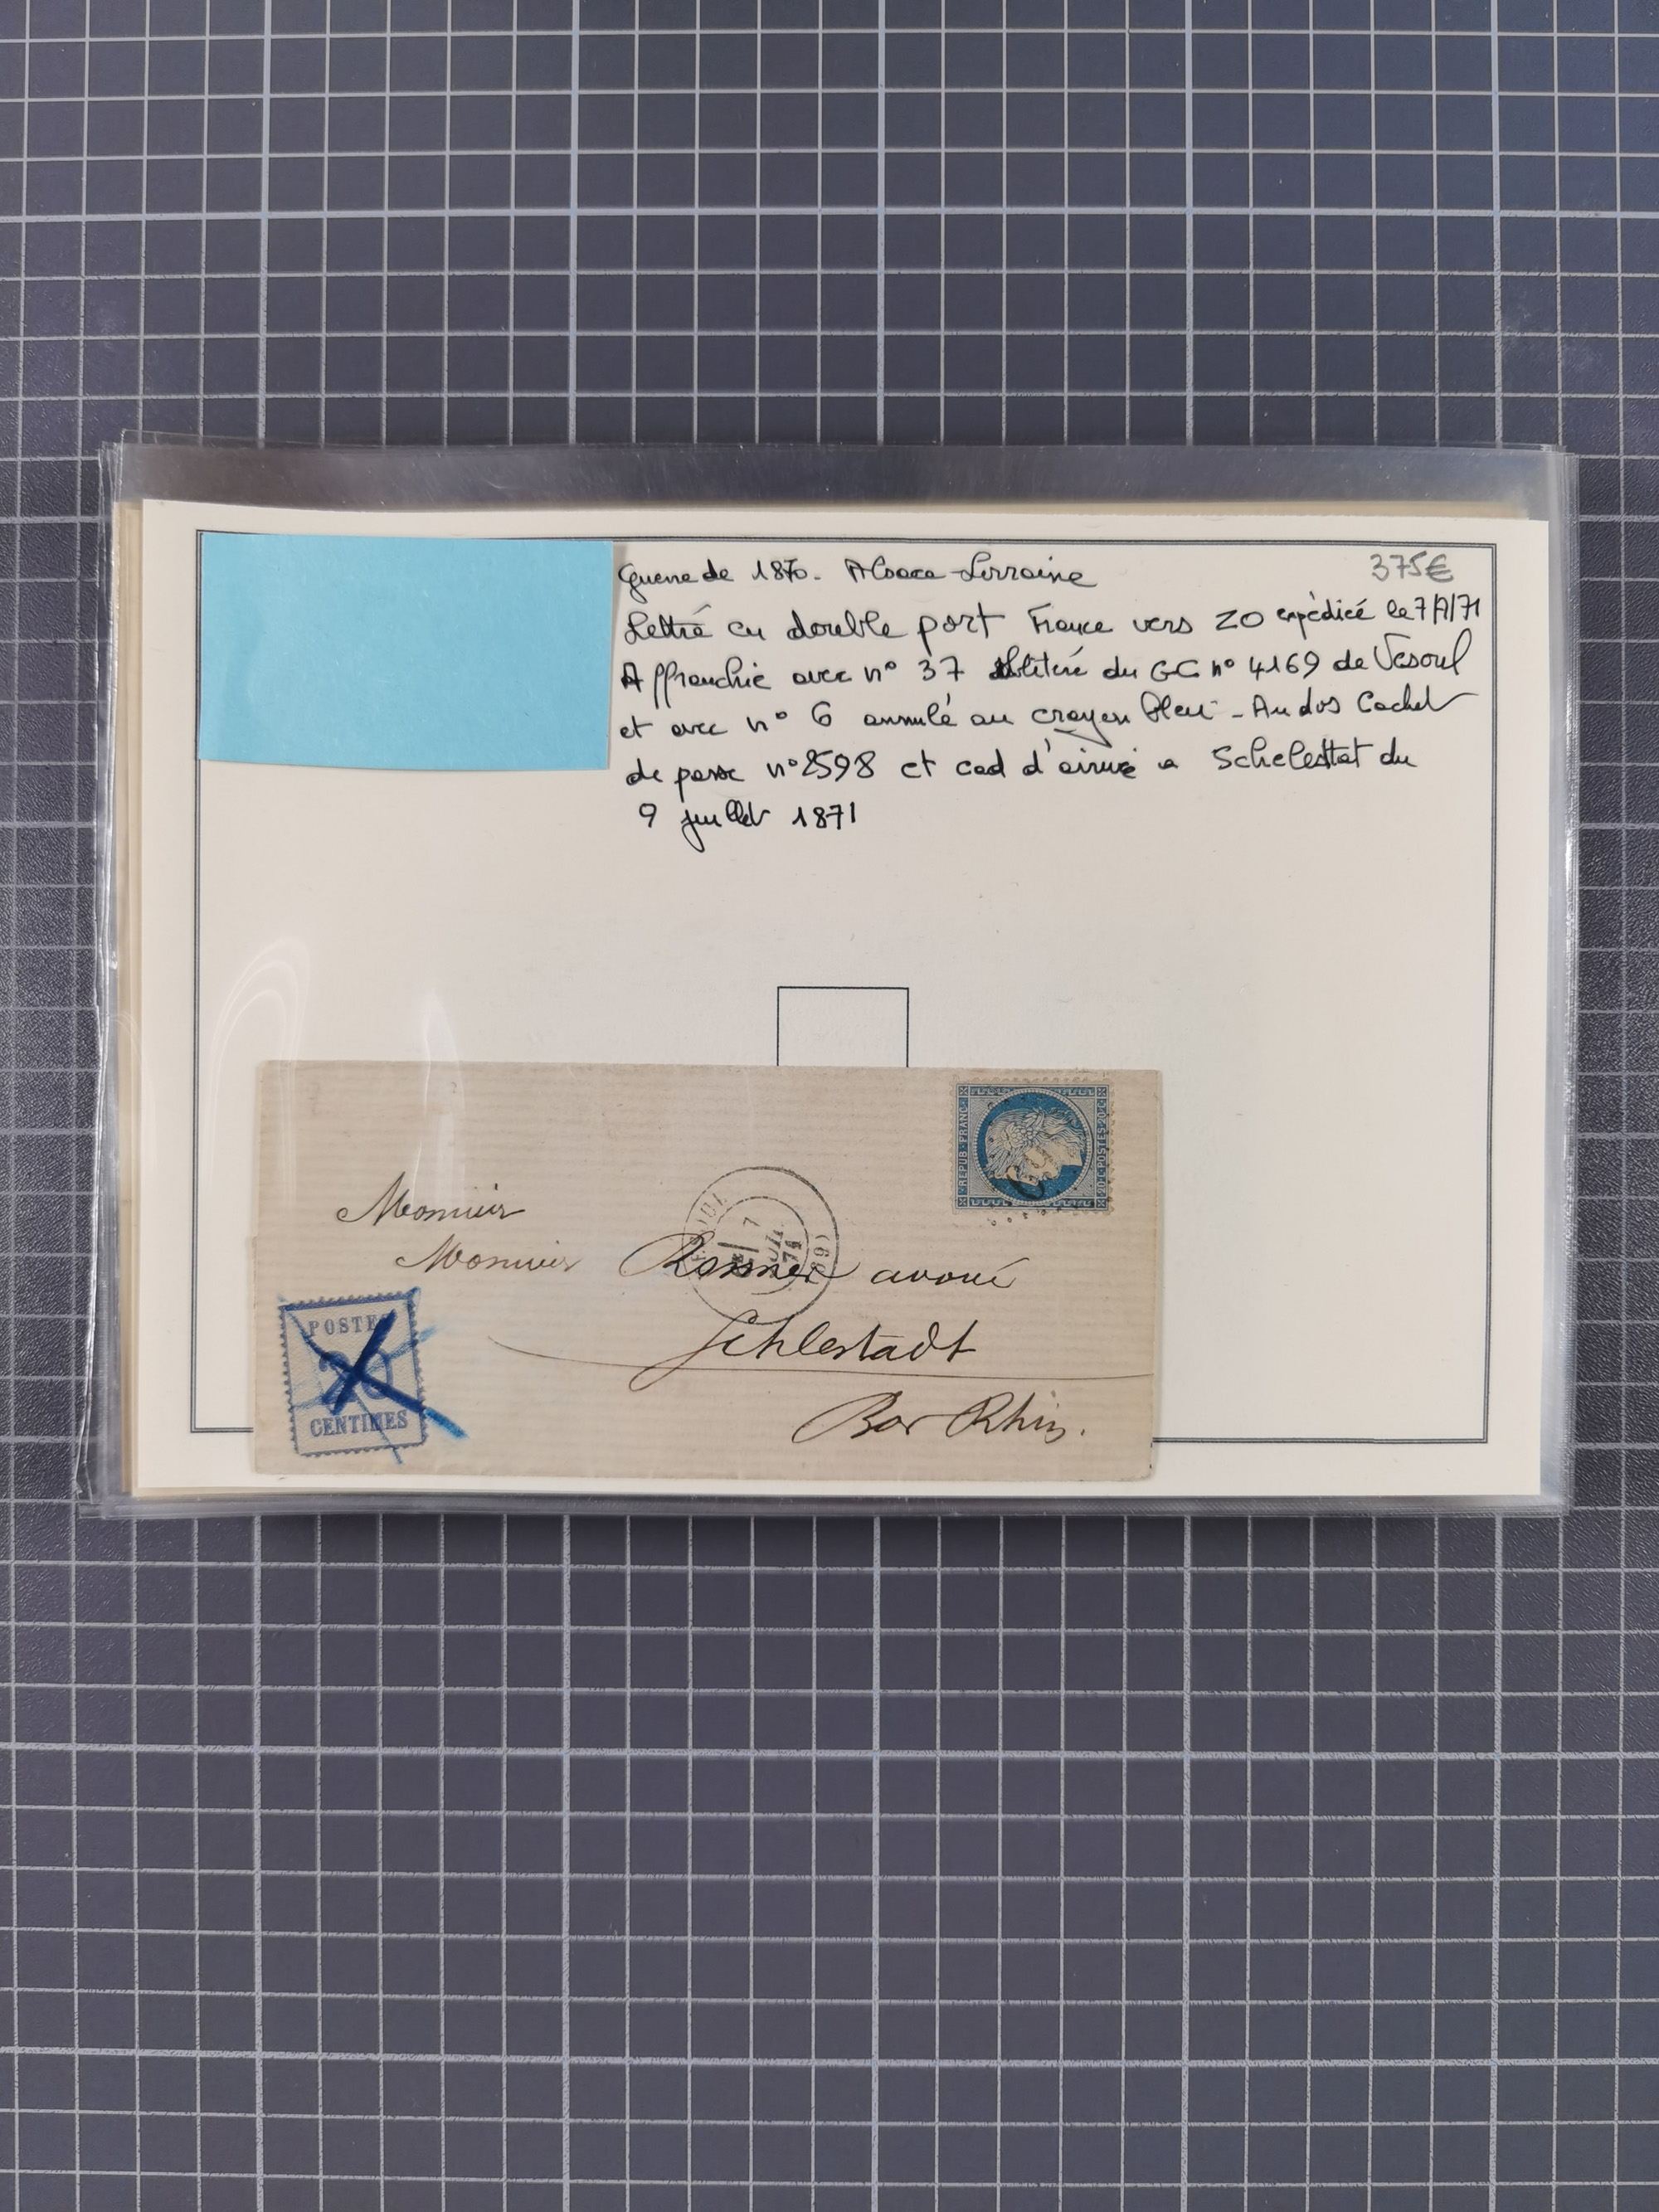 Guerre de 1870. Alsace-Lorraine
375€
Lettre en double port France vers ZO expédiée le 7/7/71
Affranchie avec n° 37 oblitéré du GC n° 4169 de Vesoul
et avec n° 6 annulé au crayon bleu - Au dos Cachet
de passe n° 2598 et cad d'arrivé a Schelestat du
9 juillet 1871
REPUB. FRANC.
20.C.POSTES.20.C
7
71
Monsieur
Monsieur avoué
Schlestadt
Bas Rhin.
POSTES
20
CENTIMES